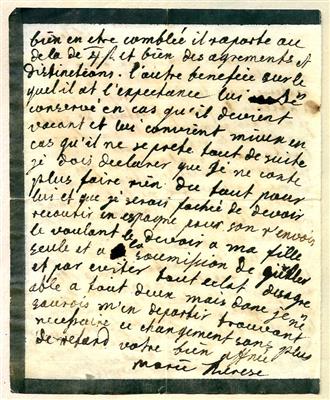 bien en etre comblée il raporte au
dela de 4/ et bien des agrements et
distinctions. l'autre benefice sur le
quel il at l'expectance lui
conservé en cas qu'il devient
vacant et lui convient mieux en
cas qu'il ne se prete tout de suite
je dois declarer que je ne conte
plus faire rien du tout pour
lui et que je serois fachée de devoir
recourir en espagne pour son renvois
le voulant devoir a ma fille
seule et a la soumission de
et par eviter tout eclat desagre
able a tout deux mais donc je ne
saurois m'en departir trouvant
necessaire ce changement sans plus
de retard votre bien affnée
Marie Therese